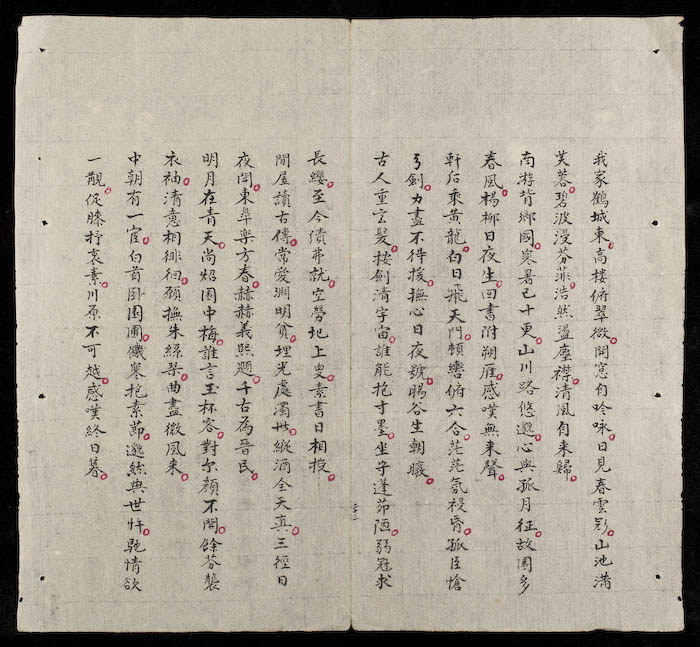 我家鶴城東高樓俯翠微開窓自吟咏日見春雲影山池滿
芙蓉碧波漫芬菲浩然盪塵襟清風自来歸
南游背鄉國寒暑已十更山川路悠邈心與孤月征故園多
春風楊柳日夜生回書附朔雁感嘆無来聲
軒后乘黃龍白日飛天門頓轡俯六合茫茫氛祲昏孤臣愴
弓劍力盡不待援撫心日夜號暘谷生朝暾
古人重玄髮按劍清宇宙誰能抱寸墨坐守蓬茆陋弱冠求
長纓至今績弗就空勞圯上叟素書日相授
閉屋讀古傳常愛淵明貧埋光處濁世縱酒全天真三徑日
夜閒東皋樂方春赫赫義熙題千古為晉民
明月在青天尚炤園中梅誰言玉杯容對尔顏不開餘芬襲
衣袖清意相徘徊顧撫朱絲琹曲盡微風来
中朝有一宦白首卧園圃儀裹抱素節邈然與世忤馳情欲
一覯促膝抒衷素川原不可越感嘆終日暮